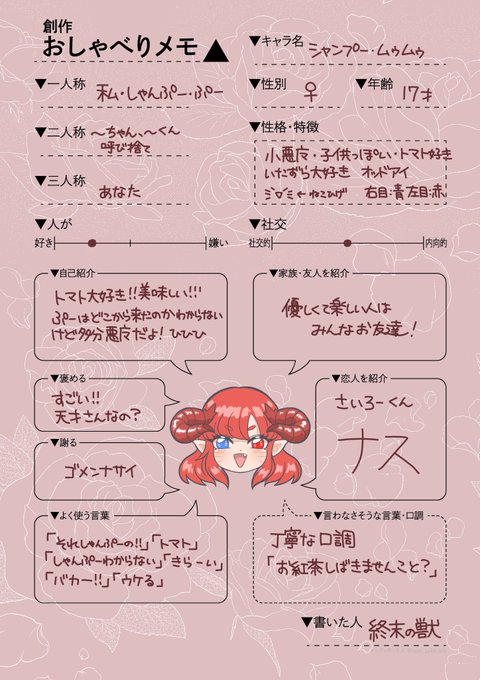 創作
おしゃべりメモ▲
▼キャラ名
シャンプー・ムゥムゥ
▼一人称
私・しゃんぷー・ぷー
▼性別
♀
▼年齢
17才
▼二人称
〜ちゃん、〜くん
呼び捨て
▼性格・特徴
小悪魔・子供っぽい・トマト好き
いたずら大好き オッドアイ
右目:青 左目:赤
▼三人称
あなた
▼人が
好き
嫌い
▼社交
社交的
内向的
▼自己紹介
トマト大好き!!美味しい!!!
ぷーはどこから来たのかわからない
けど多分悪魔だよ!ひひひ
▼家族・友人を紹介
優しくて楽しい人は
みんなお友達!
▼褒める
すごい!!
天才さんなの?
▼恋人を紹介
さいろーくん
ナス
▼謝る
ゴメンナサイ
▼よく使う言葉
「それしゃんぷーの!!」「トマト」
「しゃんぷーわからない」「きらーい」
「バカー!!」「ウケる」
▼言わなさそうな言葉・口調
丁寧な口調
「お紅茶しばきませんこと?」
▼書いた人
終末の獣